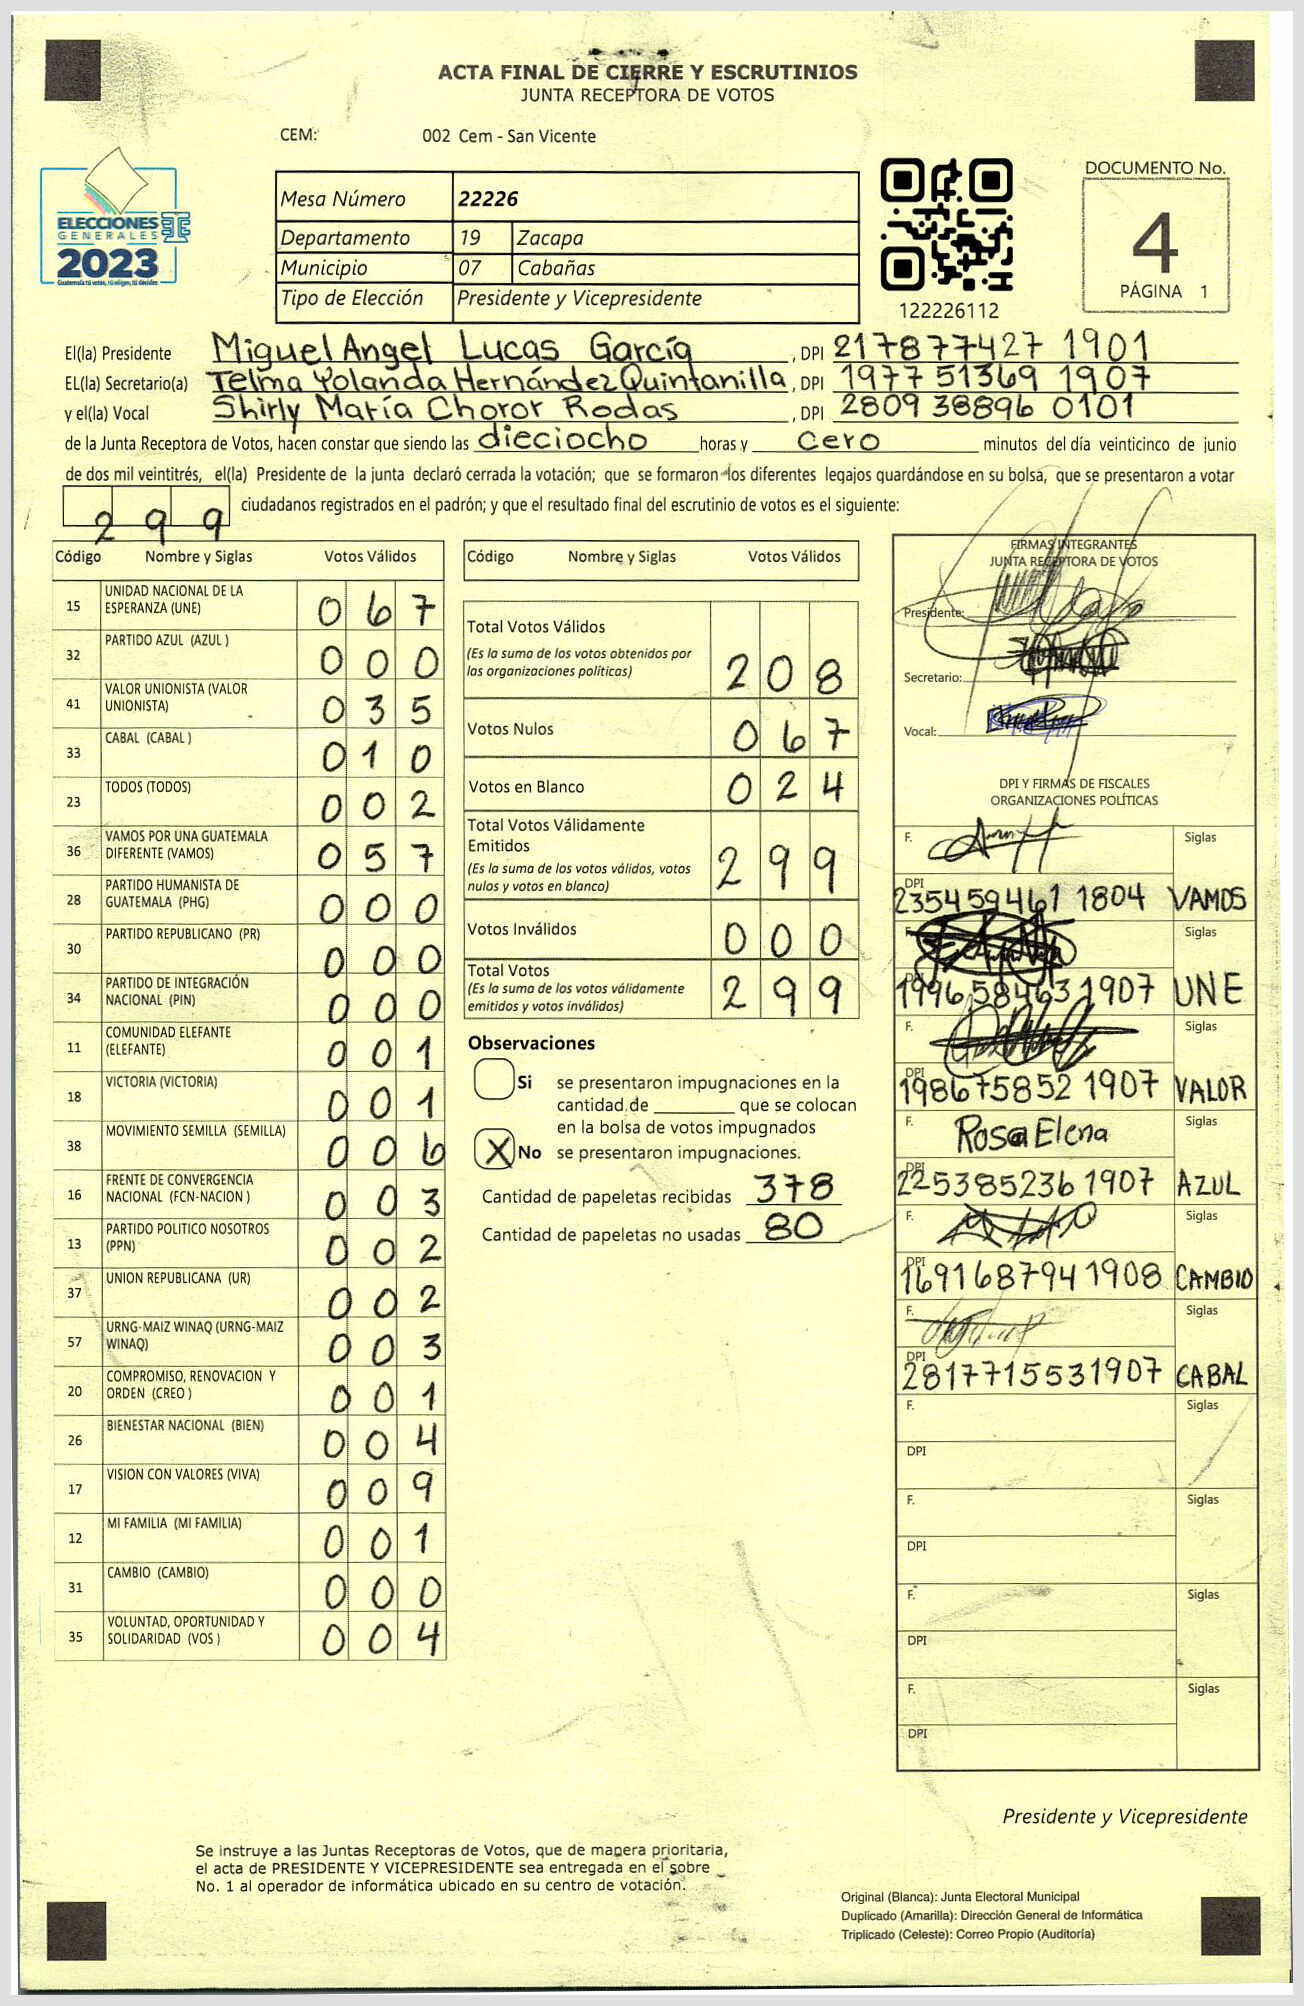 ACTA FINAL DE CIERRE Y ESCRUTINIOS
JUNTA RECEPTORA DE VOTOS
CEM: 002 Cem - San Vicente
ELECCIONES
GENERALES
2023
Guatemala tú votas, tú eliges, tú decides
Mesa Número 22226
Departamento 19 Zacapa
Municipio 07 Cabañas
Tipo de Elección Presidente y Vicepresidente
122226112
DOCUMENTO No.
4
PÁGINA 1
El(la) Presidente Miguel Angel Lucas García, DPI 217877427 1901
EL(la) Secretario(a) Telma Yolanda Hernández Quintanilla, DPI 1977 51369 1907
y el(la) Vocal Shirly María Choror Rodas, DPI 2809 38896 0101
de la Junta Receptora de Votos, hacen constar que siendo las dieciocho horas y cero minutos del día veinticinco de junio
de dos mil veintitrés, el(la) Presidente de la junta declaró cerrada la votación; que se formaron los diferentes legajos guardándose en su bolsa, que se presentaron a votar
299 ciudadanos registrados en el padrón; y que el resultado final del escrutinio de votos es el siguiente:
Código Nombre y Siglas Votos Válidos
15 UNIDAD NACIONAL DE LA ESPERANZA (UNE) 067
32 PARTIDO AZUL (AZUL ) 000
41 VALOR UNIONISTA (VALOR UNIONISTA) 035
33 CABAL (CABAL ) 010
23 TODOS (TODOS) 002
36 VAMOS POR UNA GUATEMALA DIFERENTE (VAMOS) 057
28 PARTIDO HUMANISTA DE GUATEMALA (PHG) 000
30 PARTIDO REPUBLICANO (PR) 000
34 PARTIDO DE INTEGRACIÓN NACIONAL (PIN) 000
11 COMUNIDAD ELEFANTE (ELEFANTE) 001
18 VICTORIA (VICTORIA) 001
38 MOVIMIENTO SEMILLA (SEMILLA) 006
16 FRENTE DE CONVERGENCIA NACIONAL (FCN-NACION ) 003
13 PARTIDO POLITICO NOSOTROS (PPN) 002
37 UNION REPUBLICANA (UR) 002
57 URNG-MAIZ WINAQ (URNG-MAIZ WINAQ) 003
20 COMPROMISO, RENOVACION Y ORDEN (CREO ) 001
26 BIENESTAR NACIONAL (BIEN) 004
17 VISION CON VALORES (VIVA) 009
12 MI FAMILIA (MI FAMILIA) 001
31 CAMBIO (CAMBIO) 000
35 VOLUNTAD, OPORTUNIDAD Y SOLIDARIDAD (VOS ) 004
Código Nombre y Siglas Votos Válidos
Total Votos Válidos
(Es la suma de los votos obtenidos por
las organizaciones políticas) 208
Votos Nulos 067
Votos en Blanco 024
Total Votos Válidamente
Emitidos
(Es la suma de los votos válidos, votos
nulos y votos en blanco) 299
Votos Inválidos 000
Total Votos
(Es la suma de los votos válidamente
emitidos y votos inválidos) 299
Observaciones
Si se presentaron impugnaciones en la
cantidad de ________ que se colocan
en la bolsa de votos impugnados
X No se presentaron impugnaciones.
Cantidad de papeletas recibidas 378
Cantidad de papeletas no usadas 80
FIRMAS INTEGRANTES
JUNTA RECEPTORA DE VOTOS
Presidente:
Secretario:
Vocal:
DPI Y FIRMAS DE FISCALES
ORGANIZACIONES POLÍTICAS
F. Siglas
DPI 235459461 1804 VAMOS
F. Siglas
DPI 1996584631907 UNE
F. Siglas
DPI 198675852 1907 VALOR
F. Rosa Elena Siglas
DPI 225385236 1907 AZUL
F. Siglas
DPI 1691687941908 CAMBIO
F. Siglas
DPI 2817715531907 CABAL
F. Siglas
DPI
F. Siglas
DPI
F. Siglas
DPI
F. Siglas
DPI
Presidente y Vicepresidente
Se instruye a las Juntas Receptoras de Votos, que de manera prioritaria,
el acta de PRESIDENTE Y VICEPRESIDENTE sea entregada en el sobre
No. 1 al operador de informática ubicado en su centro de votación.
Original (Blanca): Junta Electoral Municipal
Duplicado (Amarilla): Dirección General de Informática
Triplicado (Celeste): Correo Propio (Auditoría)